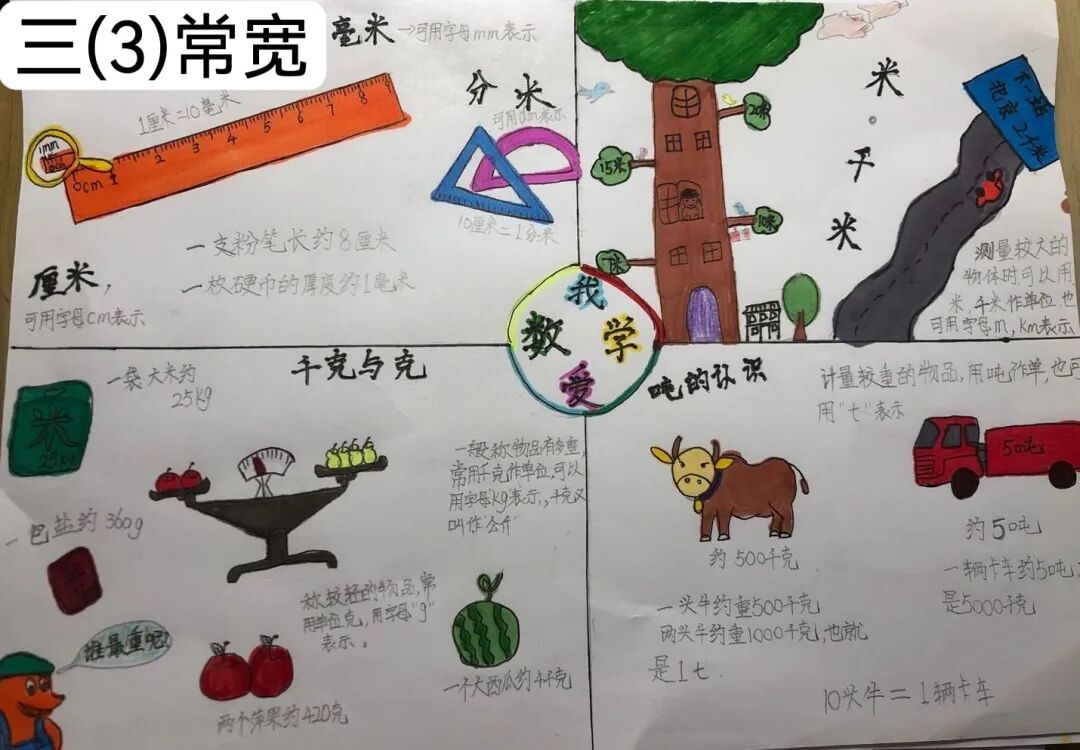 三(3)常宽
毫米→可用字母mm表示
1厘米=10毫米
1mm
0cm 1 2 3 4 5 6 7 8 9
分米
可用dm表示
10厘米=1分米
一支粉笔长约8厘米
一枚硬币的厚度约1毫米
厘米,
可用字母cm表示
米。千米
15米
10米
下一站
北京 2千米
测量较大的
物体时可以用
米,千米作单位也
可用字母m,km表示
我
数学
爱
千克与克
一袋大米约
25kg
米
25kg
一包盐约360g
一般称物品有多重,
常用千克作单位,可以
用字母kg表示,千克又
叫作"公斤"
称较轻的物品,常
用单位克,用字母"g"
表示。
谁最重呢?
两个苹果约420克
一个大西瓜约4千克
吨的认识
计量较重的物品,用吨作单,也可
用"t"表示
约500千克
一头牛约重500千克
两头牛约重1000千克,也就
是1t.
50吨
约5吨
一辆卡车约5吨,
是5000千克
10头牛=1辆卡车